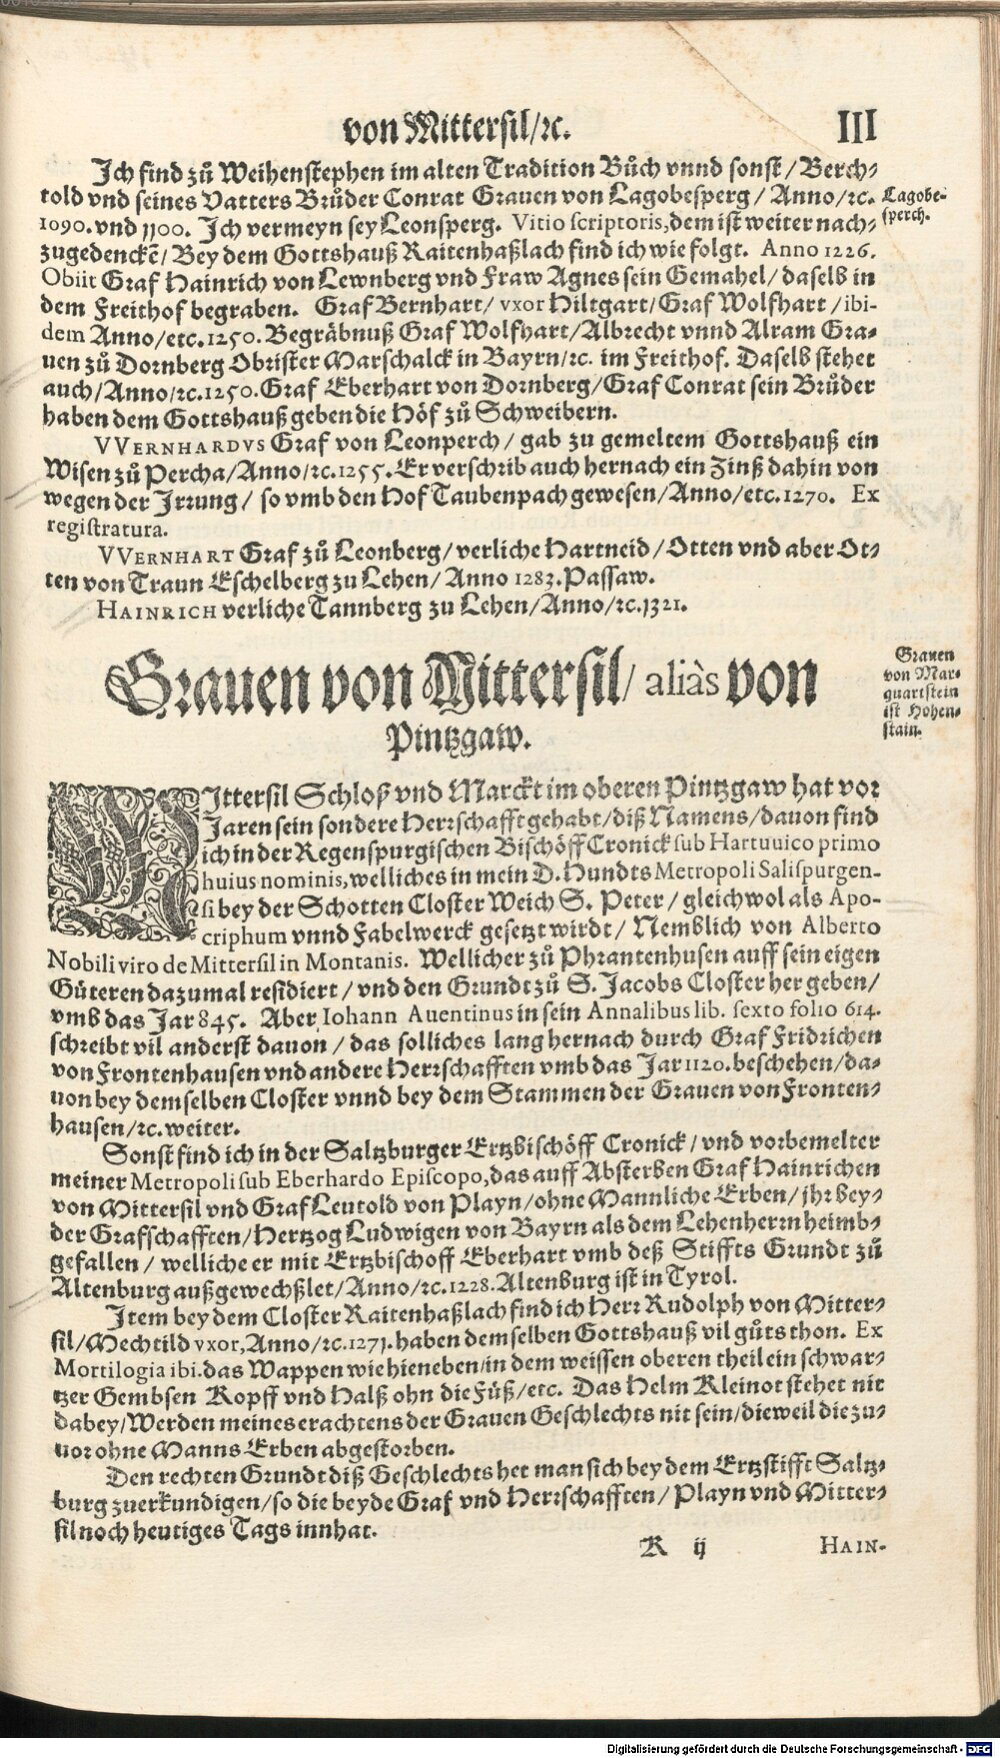 von Mittersil/ꝛc. III
Ich find zů Weihenstephen im alten Tradition Bůch vnnd sonst/ Berch-
told vnd seines Vatters Brůder Conrat Grauen von Lagobesperg/ Anno/ꝛc.
Lagobe-
sperch.
1090. vnd 1100. Ich vermeyn sey Leonsperg. Vitio scriptoris, dem ist weiter nach-
zugedenckē/ Bey dem Gottshauß Raitenhaßlach find ich wie folgt. Anno 1226.
Obiit Graf Hainrich von Lewnberg vnd Fraw Agnes sein Gemahel/ daselb in
dem Freithof begraben. Graf Bernhart/ vxor Hiltgart/ Graf Wolfhart/ ibi-
dem Anno/etc. 1250. Begräbnuß Graf Wolfhart/ Albrecht vnnd Alram Gra-
uen zů Dornberg Obrister Marschalck in Bayrn/ꝛc. im Freithof. Daselb stehet
auch/ Anno/ꝛc. 1250. Graf Eberhart von Dornberg/ Graf Conrat sein Brůder
haben dem Gottshauß geben die Höf zů Schweibern.
VVERNHARDVS Graf von Leonperch/ gab zu gemeltem Gottshauß ein
Wisen zů Percha/ Anno/ꝛc. 1255. Er verschrib auch hernach ein Zinß dahin von
wegen der Irrung/ so vmb den Hof Taubenpach gewesen/ Anno/etc. 1270. Ex
registratura.
VVERNHART Graf zů Leonberg/ verliche Hartneid/ Otten vnd aber Ot-
ten von Traun Eschelberg zu Lehen/ Anno 1283. Passaw.
HAINRICH verliche Tannberg zu Lehen/ Anno/ꝛc. 1321.
Grauen von Mittersil/ aliàs von
Pintzgaw.
Grauen
von Mar-
quartstein
ist Hohen-
stain.
MIttersil Schloß vnd Marckt im oberen Pintzgaw hat vor
Jaren sein sondere Herrschafft gehabt/ diß Namens/ dauon find
ich in der Regenspurgischen Bischöff Cronick sub Hartuuico primo
huius nominis, welliches in mein D. Hundts Metropoli Salispurgen-
si bey der Schotten Closter Weich S. Peter/ gleichwol als Apo-
criphum vnnd Fabelwerck gesetzt wirdt/ Nemblich von Alberto
Nobili viro de Mittersil in Montanis. Wellicher zů Phrantenhusen auff sein eigen
Güteren dazumal residiert/ vnd den Grundt zů S. Jacobs Closter her geben/
vmb das Jar 845. Aber Iohann Auentinus in sein Annalibus lib. sexto folio 614.
schreibt vil anderst dauon/ das solliches lang hernach durch Graf Fridrichen
von Frontenhausen vnd andere Herrschafften vmb das Jar 1120. beschehen/ da-
uon bey demselben Closter vnnd bey dem Stammen der Grauen von Fronten-
hausen/ꝛc. weiter.
Sonst find ich in der Saltzburger Ertzbischöff Cronick/ vnd vorbemelter
meiner Metropoli sub Eberhardo Episcopo, das auff Absterben Graf Hainrichen
von Mittersil vnd Graf Leutold von Playn/ ohne Mannliche Erben/ jhr bey-
der Grafschafften/ Hertzog Ludwigen von Bayrn als dem Lehenherrn heimb-
gefallen/ welliche er mit Ertzbischoff Eberhart vmb deß Stiffts Grundt zů
Altenburg außgewechßlet/ Anno/ꝛc. 1228. Altenburg ist in Tyrol.
Item bey dem Closter Raitenhaßlach find ich Herr Rudolph von Mitter-
sil/ Mechtild vxor, Anno/ꝛc. 1271. haben demselben Gottshauß vil gůts thon. Ex
Mortilogia ibi. das Wappen wie hieneben/ in dem weissen oberen theil ein schwar-
tzer Gembsen Kopff vnd Halß ohn die Füß/etc. Das Helm Kleinot stehet nit
dabey/ Werden meines erachtens der Grauen Geschlechts nit sein/ dieweil die zu-
uor ohne Manns Erben abgestorben.
Den rechten Grundt diß Geschlechts het man sich bey dem Ertzstifft Saltz-
burg zuerkundigen/ so die beyde Graf vnd Herrschafften/ Playn vnd Mitter-
sil noch heutiges Tags innhat.
K ij HAIN-
Digitalisierung gefördert durch die Deutsche Forschungsgemeinschaft - DFG